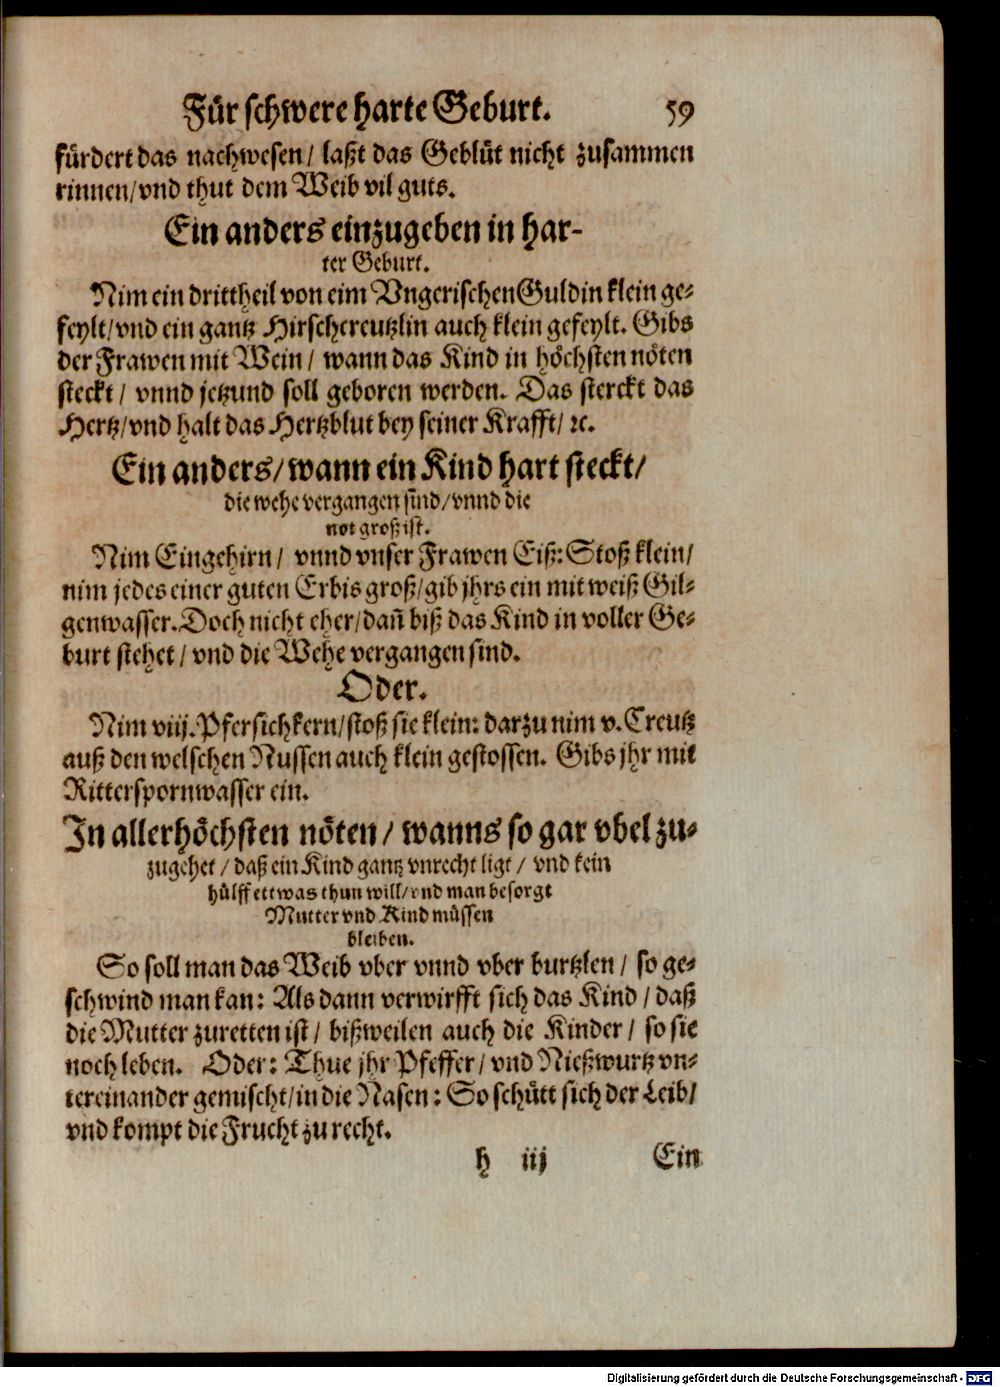 Für schwere harte Geburt. 59
fürdert das nachwesen / laßt das Geblüt nicht zusammen
rinnen/vnd thut dem Weib vil guts.
Ein anders einzugeben in har-
ter Geburt.
Nim ein drittheil von eim Vngerischen Guldin klein ge-
feylt/vnd ein gantz Hirschcreutzlin auch klein gefeylt. Gibs
der Frawen mit Wein / wann das Kind in höchsten nöten
steckt / vnnd jetzund soll geboren werden. Das sterckt das
Hertz/vnd halt das Hertzblut bey seiner Krafft/ ꝛc.
Ein anders/wann ein Kind hart steckt/
die wehe vergangen sind/vnnd die
not groß ist.
Nim Eingehirn / vnnd vnser Frawen Eiß: Stoß klein/
nim jedes einer guten Erbis groß/gib jhrs ein mit weiß Gil-
genwasser. Doch nicht eher/dañ biß das Kind in voller Ge-
burt stehet / vnd die Wehe vergangen sind.
Oder.
Nim viij. Pfersichkern/stoß sie klein: darzu nim v. Creutz
auß den welschen Nussen auch klein gestossen. Gibs jhr mit
Ritterspornwasser ein.
In allerhöchsten nöten / wanns so gar vbel zu-
zugehet / daß ein Kind gantz vnrecht ligt / vnd kein
hülff ettwas thun will/vnd man besorgt
Mutter vnd Kind müssen
bleiben.
So soll man das Weib vber vnnd vber burtzlen / so ge-
schwind man kan: Als dann verwirfft sich das Kind / daß
die Mutter zuretten ist / bißweilen auch die Kinder / so sie
noch leben. Oder: Thue jhr Pfeffer / vnd Nießwurtz vn-
tereinander gemischt/in die Nasen: So schütt sich der Leib/
vnd kompt die Frucht zu recht.
h iij Ein
Digitalisierung gefördert durch die Deutsche Forschungsgemeinschaft - DFG